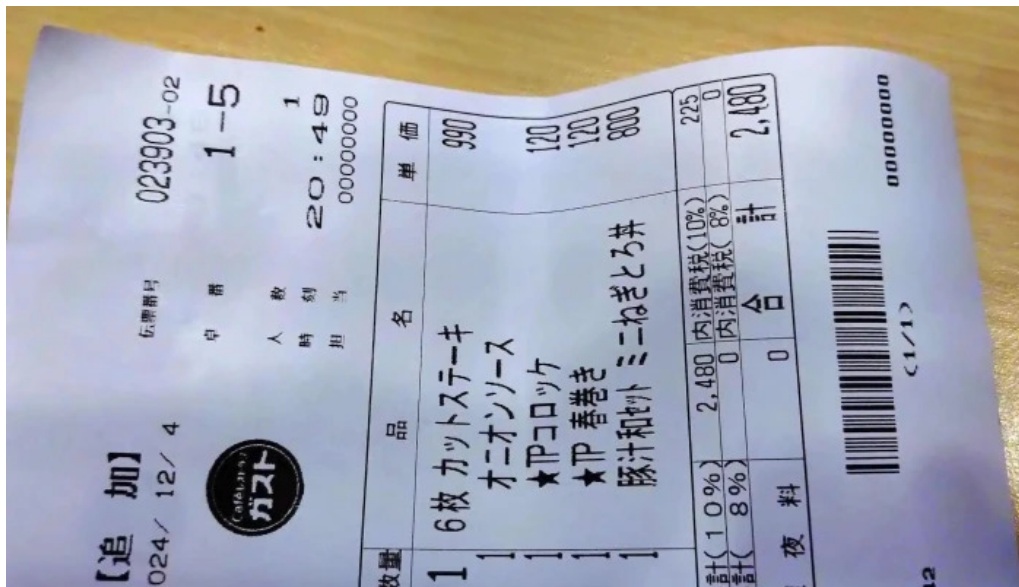 【追 加】
伝票番号 023903-02
024/ 12/ 4
卓 番 1-5
人 数 1
時 刻 20:49
担 当 00000000
Cafeレストラン
ガスト
数量 品 名 単 価
1 6枚 カットステーキ 990
1 オニオンソース
1 ★TPコロッケ 120
1 ★TP 春巻き 120
1 豚汁和セット ミニねぎとろ丼 800
計(10%) 2,480 内消費税(10%) 225
計( 8%) 0 内消費税( 8%) 0
夜 料 0 合 計 2,480
(1/1) 00000000
12